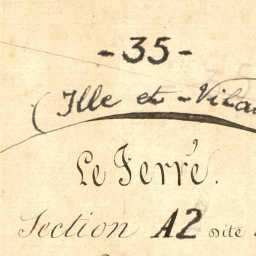 - 35 -
(Ille et - Vilai
Le Ferré.
Section A2 dite